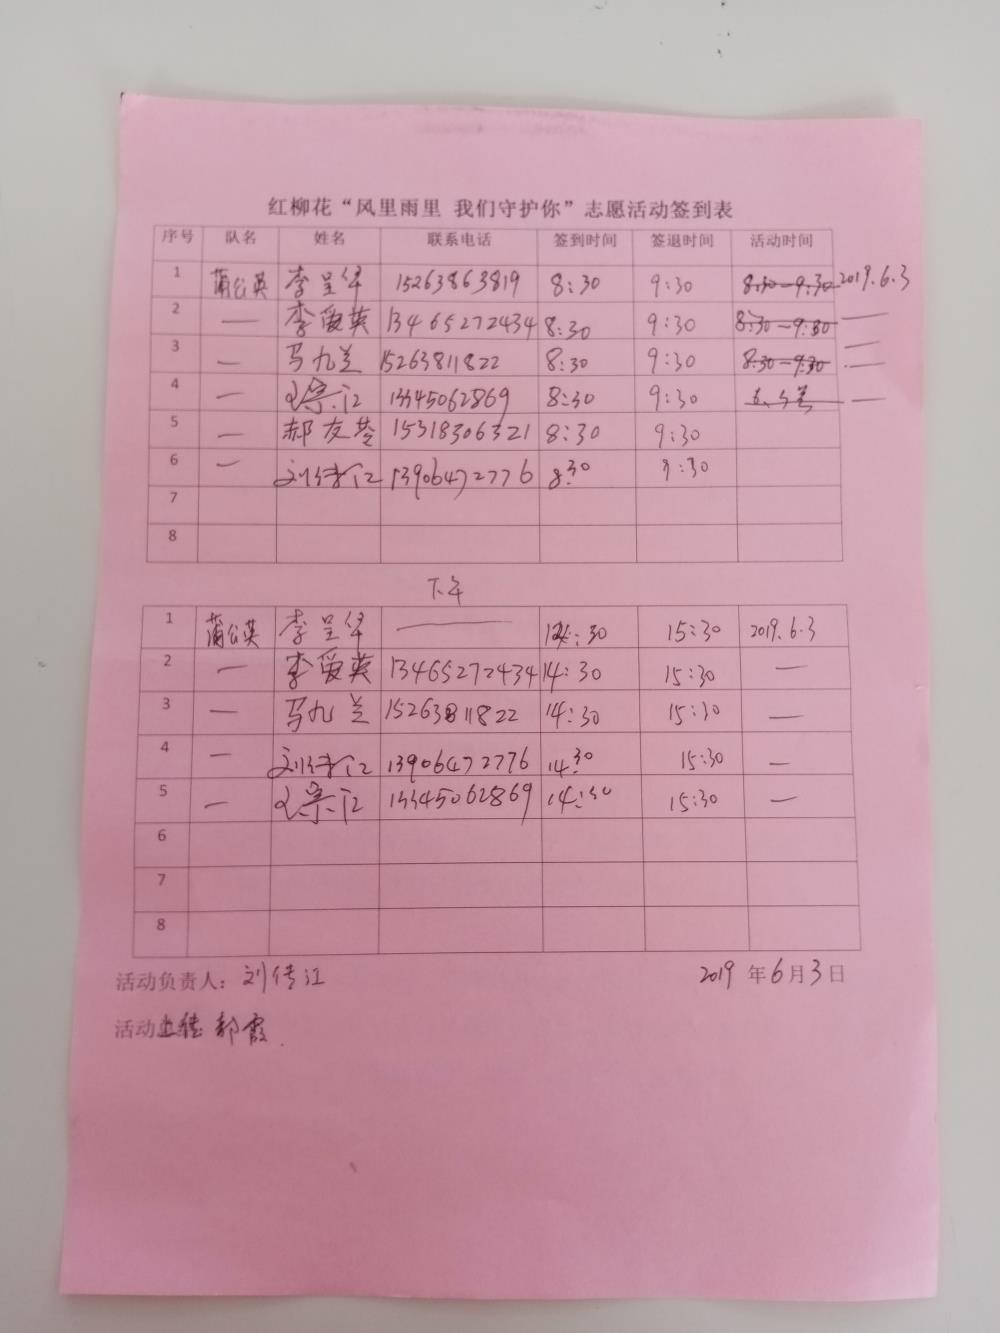 红柳花“风里雨里 我们守护你”志愿活动签到表
序号 队名 姓名 联系电话 签到时间 签退时间 活动时间
1 蒲公英 李呈华 15263863819 8:30 9:30 8:30-9:30 2019.6.3
2 — 李爱英 13465272434 8:30 9:30 8:30-9:30 —
3 — 马九兰 15263811822 8:30 9:30 8:30-9:30 —
4 — 13345062869 8:30 9:30 —
5 — 郝友 15318306321 8:30 9:30
6 — 刘传江 13906472776 8:30 9:30
7
8
下午
1 蒲公英 李呈华 — 14:30 15:30 2019.6.3
2 — 李爱英 13465272434 14:30 15:30 —
3 — 马九兰 15263811822 14:30 15:30 —
4 — 刘传江 13906472776 14:30 15:30 —
5 — 13345062869 14:30 15:30 —
6
7
8
活动负责人：刘传江 2019年6月3日
活动 郭霞